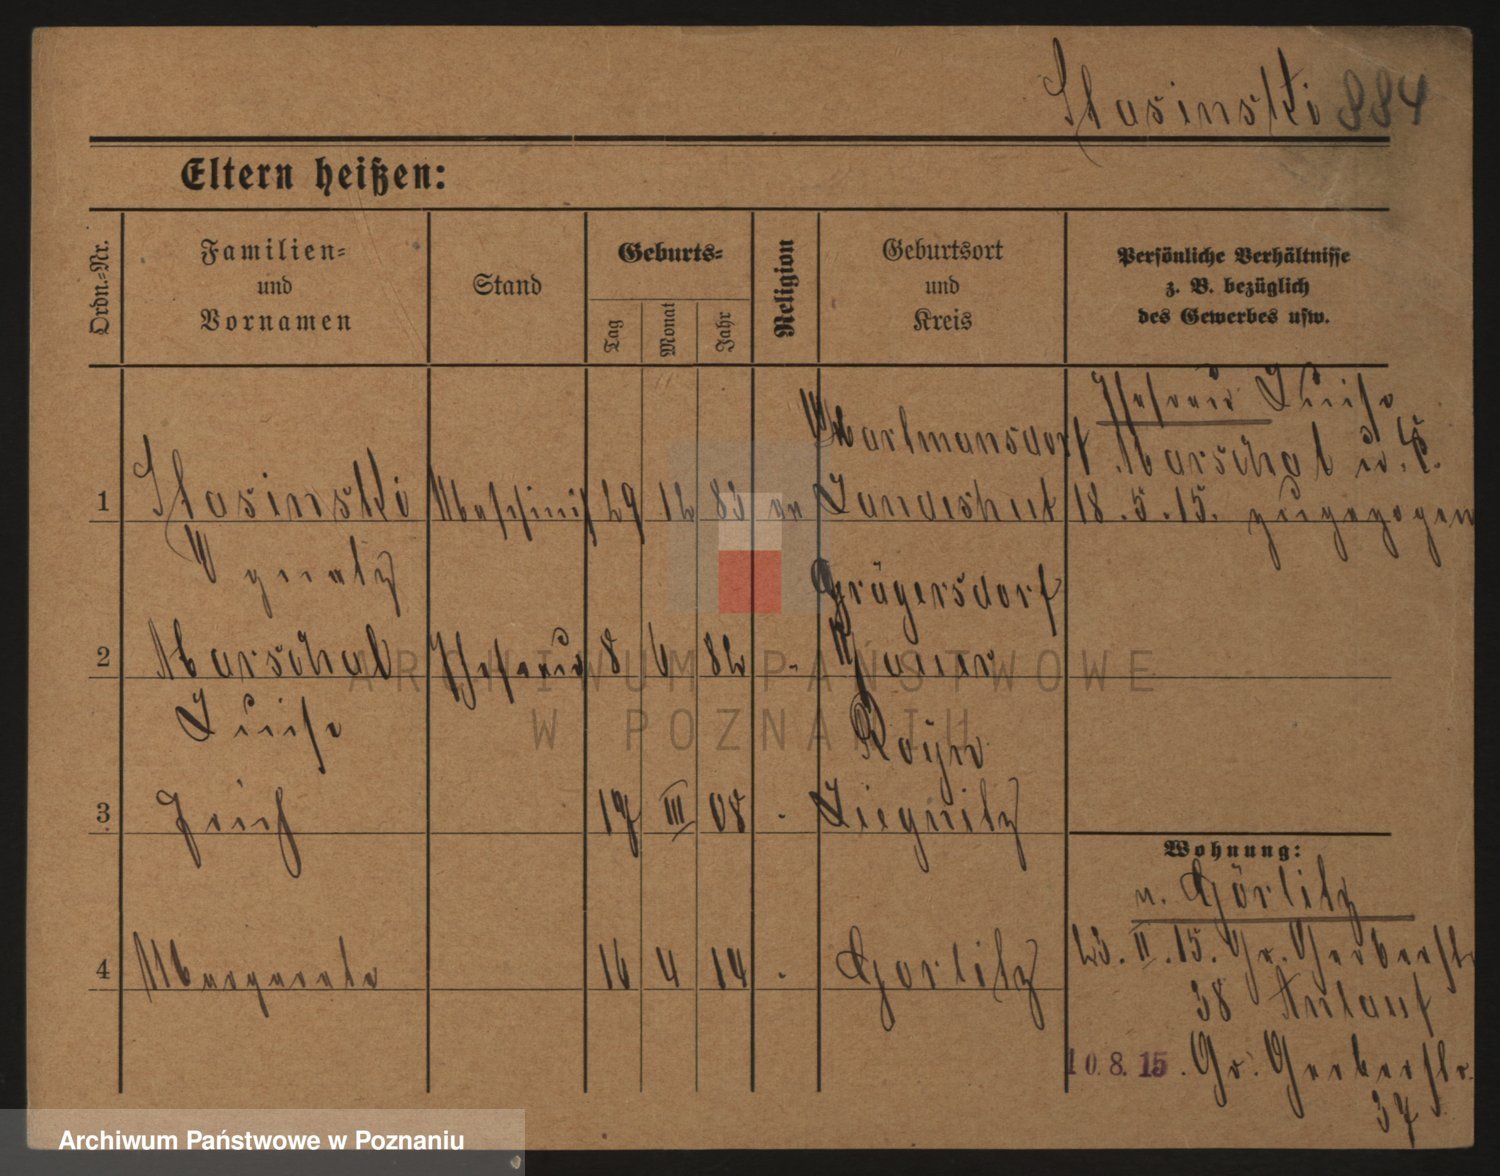 Stasinski 884
Eltern heißen:
Ordn.-Nr.
Familien-
und
Vornamen
Stand
Geburts-
Tag
Monat
Jahr
Religion
Geburtsort
und
Kreis
Persönliche Verhältnisse
z. B. bezüglich
des Gewerbes usw.
Ehefrau Luise
Hartmansdorf Marschal
1 Stasinski Maschinist 29 12 83 Landeshut 18.5.15. zugezogen
Ygnatz Grögersdorf
2 Marschal Ehefrau 8 6 82 Jauer
Luise Royn
3 Erich 17 III 08 Liegnitz
Wohnung:
n. Görlitz
23. II. 15. Gr. Gerberstr.
4 Margarete 16 4 14 Gorlitz
38 Anlauf
10.8.15. Gr. Gerberstr.
37
ARCHIWUM PAŃSTWOWE
W POZNANIU
Archiwum Państwowe w Poznaniu